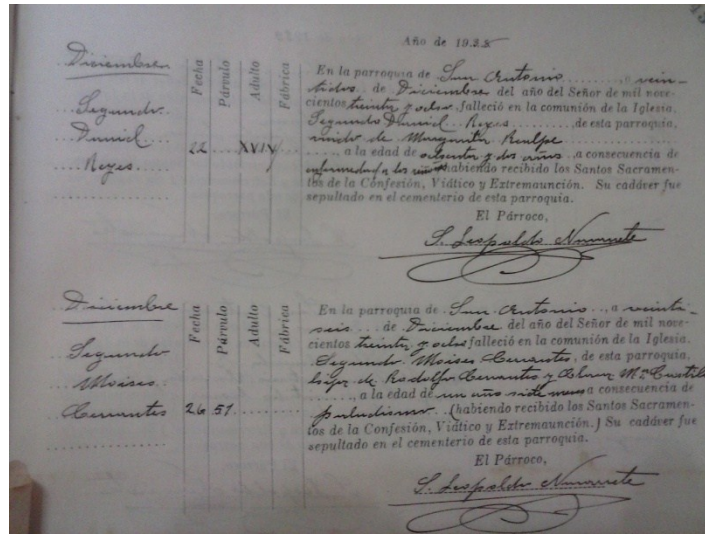 Año de 1938
Diciembre
Segundo
Daniel
Reyes
Fecha
Párvulo
Adulto
Fábrica
22 XVIV
En la parroquia de San Antonio, a vein-
tidos de Diciembre del año del Señor de mil nove-
cientos treinta y ocho, falleció en la comunión de la Iglesia,
Segundo Daniel Reyes, de esta parroquia,
viudo de Margarita
, a la edad de ochenta y dos años, a consecuencia de
enfermedad a los habiendo recibido los Santos Sacramen-
tos de la Confesión, Viático y Extremaunción. Su cadáver fue
sepultado en el cementerio de esta parroquia.
El Párroco,
S. Leopoldo Navarrete
Diciembre
Segundo
Moises
Cervantes
Fecha
Párvulo
Adulto
Fábrica
26 51
En la parroquia de San Antonio, a veinti-
seis de Diciembre del año del Señor de mil nove-
cientos treinta y ocho, falleció en la comunión de la Iglesia.
Segundo Moises Cervantes, de esta parroquia,
hijo de Rodolfo Cervantes y Mª Castillo
, a la edad de un año siete meses a consecuencia de
paludismo. (habiendo recibido los Santos Sacramen-
tos de la Confesión, Viático y Extremaunción.) Su cadáver fue
sepultado en el cementerio de esta parroquia.
El Párroco,
S. Leopoldo Navarrete